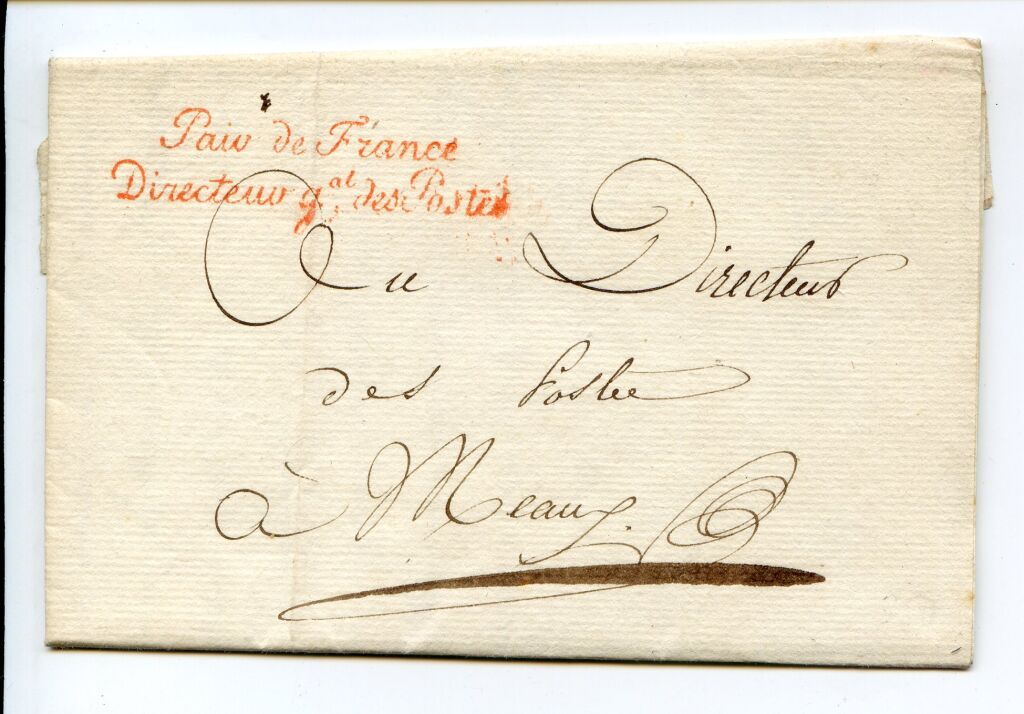 Pair de France
Directeur gal des Postes
Au Directeur
des Postes
à Meaux